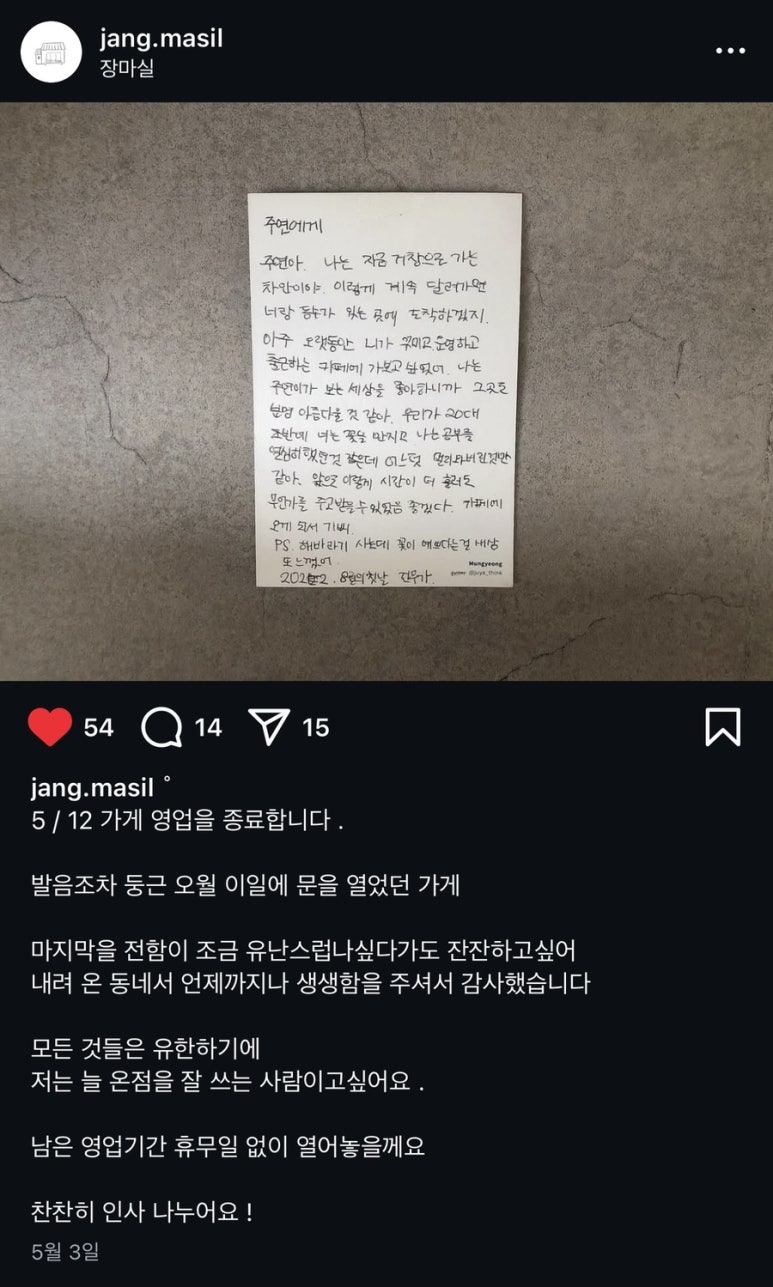 jang.masil
장마실
주연에게
주연아. 나는 지금 거창으로 가는
차안이야. 이렇게 계속 달려가면
너랑 동수가 있는 곳에 도착하겠지.
아주 오랫동안 니가 꾸미고 운영하고
출근하는 카페에 가보고 싶었어. 나는
주연이가 보는 세상을 좋아하니까 그곳도
분명 아름다울 것 같아. 우리가 20대
초반에 너는 꽃을 만지고 나는 공부를
열심히 했던것 같은데 어느덧 멀리와버린것만
같아. 앞으로 이렇게 시간이 더 흘러도
무언가를 주고받을 수 있었음 좋겠다. 카페에
오게 되서 기뻐.
PS. 해바라기 사는데 꽃이 예쁘다는걸 새삼
또 느꼈어.
8월의 첫날
Mungyeong
@juya_think
54 14 15
jang.masil °
5 / 12 가게 영업을 종료합니다 .
발음조차 둥근 오월 이일에 문을 열었던 가게
마지막을 전함이 조금 유난스럽나싶다가도 잔잔하고싶어
내려 온 동네서 언제까지나 생생함을 주셔서 감사했습니다
모든 것들은 유한하기에
저는 늘 온점을 잘 쓰는 사람이고싶어요 .
남은 영업기간 휴무일 없이 열어놓을께요
찬찬히 인사 나누어요 !
5월 3일